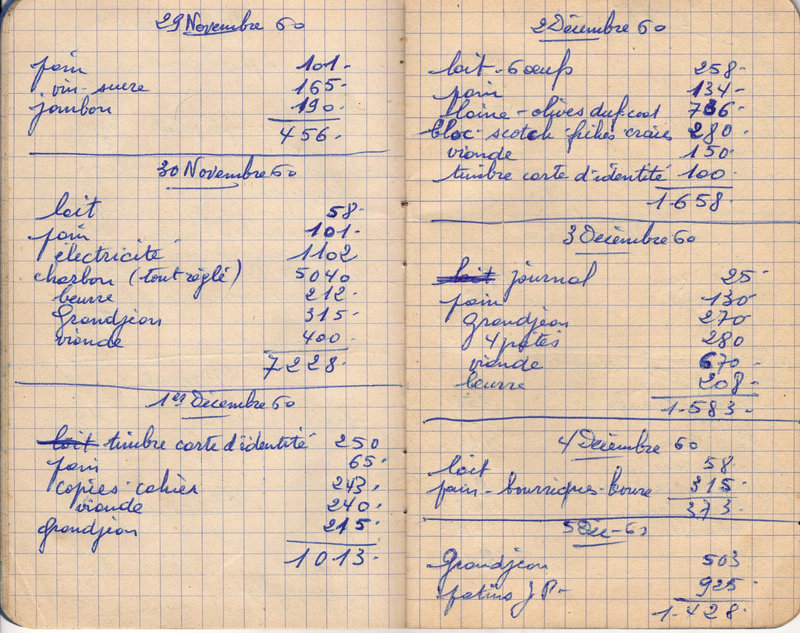 29 Novembre 60
pain 101-
vin-sucre 165-
jambon 190-
456-
30 Novembre 60
lait 58-
pain 101-
électricité 1102
charbon (tout réglé) 5040
beurre 212-
Grandjean 315-
viande 400-
7.228-
1er Décembre 60
lait timbre carte d'identité 250
pain 65-
copies-cahier 243-
viande 240-
grandjean 215-
1013-
2 Décembre 60
lait-6 oeufs 258-
pain 134-
laine-olives 736-
bloc-scotch- craies 280-
viande 150-
timbre carte d'identité 100-
1.658-
3 Décembre 60
lait journal 25-
pain 130-
grandjean 270
4 patés 280
viande 670-
beurre 208-
1.583-
4 Décembre 60
lait 58
pain- 315-
373-
5 Déc-60
Grandjean 503
patins J P- 925-
1.428-